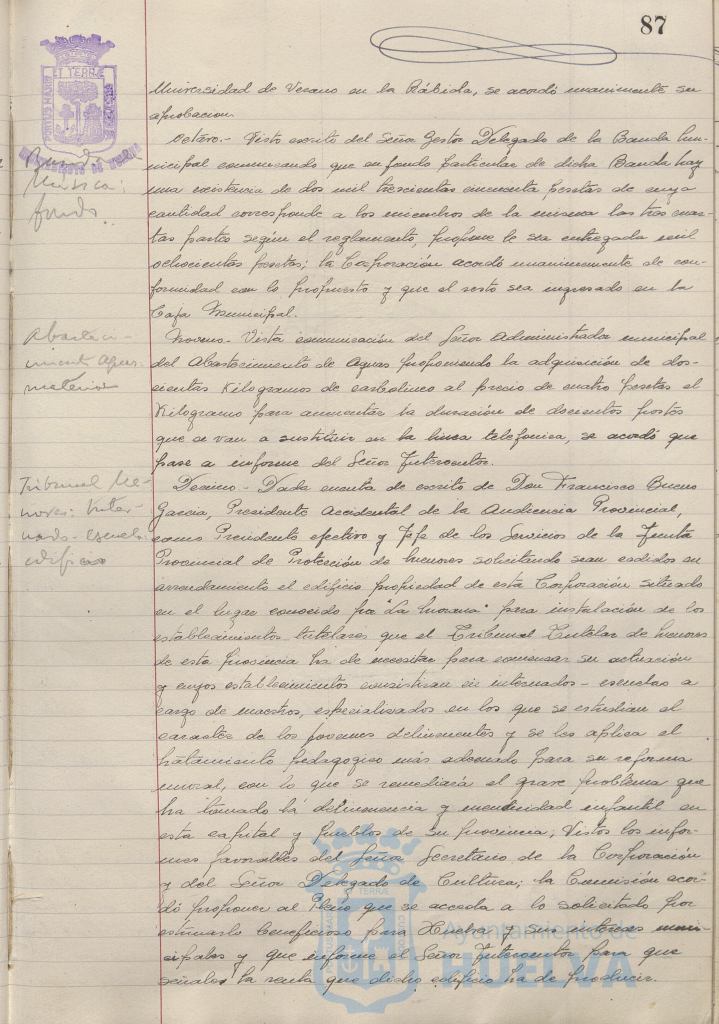 87
Universidad de Verano en la Rábida, se acordó unanimemente su
aprobacion.
Octavo.- Visto escrito del Señor Gestor Delegado de la Banda Mu-
nicipal comunicando que en fondo particular de dicha Banda hay
una existencia de dos mil trescientas cincuenta pesetas de cuya
cantidad corresponde a los miembros de la misma las tres cuar-
tas partes según el reglamento, propone le sea entregada mil
ochocientas pesetas; la Corporación acordó unanimemente de con-
formidad con lo propuesto y que el resto sea ingresado en la
Caja Municipal.
Banda
Musica:
fondo.
Noveno.- Vista comunicación del Señor Administrador municipal
del Abastecimiento de Aguas proponiendo la adquisición de dos-
cientos Kilogramos de carbolineo al precio de cuatro pesetas el
Kilogramo para aumentar la duración de doscientos postes
que se van a sustituir en la linea telefónica, se acordó que
pase a informe del Señor Interventor.
Abasteci-
miento Aguas:
material
Decimo.- Dada cuenta de escrito de Don Francisco Bueno
Garcia, Presidente Accidental de la Audiencia Provincial,
como Presidente efectivo y Jefe de los Servicios de la Junta
Provincial de Protección de Menores solicitando sean cedidos en
arrendamiento el edificio propiedad de esta Corporación situado
en el lugar conocido por "La Morana" para instalación de los
establecimientos tutelares que el Tribunal Tutelar de Menores
de esta provincia ha de necesitar para comenzar su actuación
y cuyos establecimientos consistiran en internados-escuelas a
cargo de maestros, especializados en los que se estudian el
caracter de los jovenes delincuentes y se les aplica el
tratamiento pedagogico más adecuado para su reforma
moral, con lo que se remediará el grave problema que
ha tomado la delincuencia y mendicidad infantil en
esta capital y pueblos de su provincia; Vistos los infor-
mes favorables del Señor Secretario de la Corporación
y del Señor Delegado de Cultura; la Comisión acor-
dó proponer al Pleno que se acceda a lo solicitado por
estimarlo beneficioso para Huelva y sus intereses muni-
cipales y que informe el Señor Interventor para que
señale la renta que dicho edificio ha de producir.
Tribunal Me-
nores: Inter-
nado-escuela:
edificio
Ayuntamiento de
HUELVA